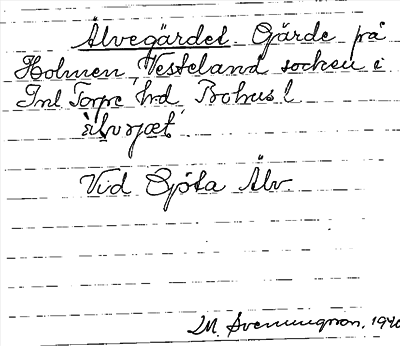 Älvegärdet. Gärde på
Holmen, Vesteland socken i
Inl Torpe hrd, Bohusl
Vid Göta Älv.
M. Svenningson, 1940